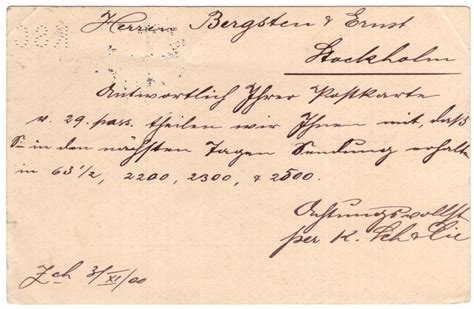 Herren Bergsten & Ernst
Stockholm
Antwortlich Ihrer Postkarte
v. 29. pass. theilen wir Ihnen mit, daß
Sie in den nächsten Tagen Sendung erhalten
in 63 1/2, 2200, 2300, & 2500.
Achtungsvollst
per K. Sch & Cie
Zch 3/XI/00